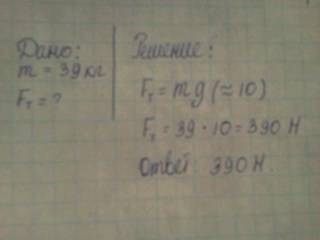 Дано:
m = 39 кг
Fт = ?
Решение:
Fт = mg (≈10)
Fт = 39 · 10 = 390 Н
Ответ: 390 Н.